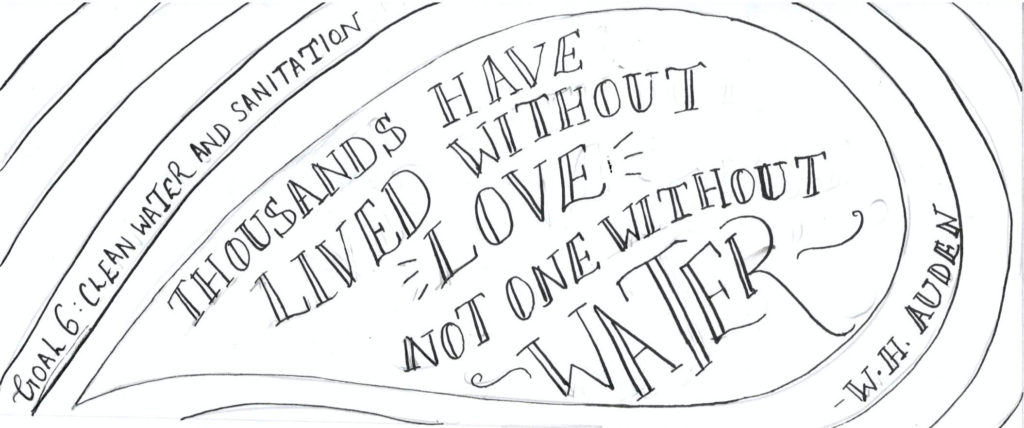 GOAL 6: CLEAN WATER AND SANITATION
THOUSANDS HAVE
LIVED WITHOUT
LOVE
NOT ONE WITHOUT
WATER
-W.H. AUDEN